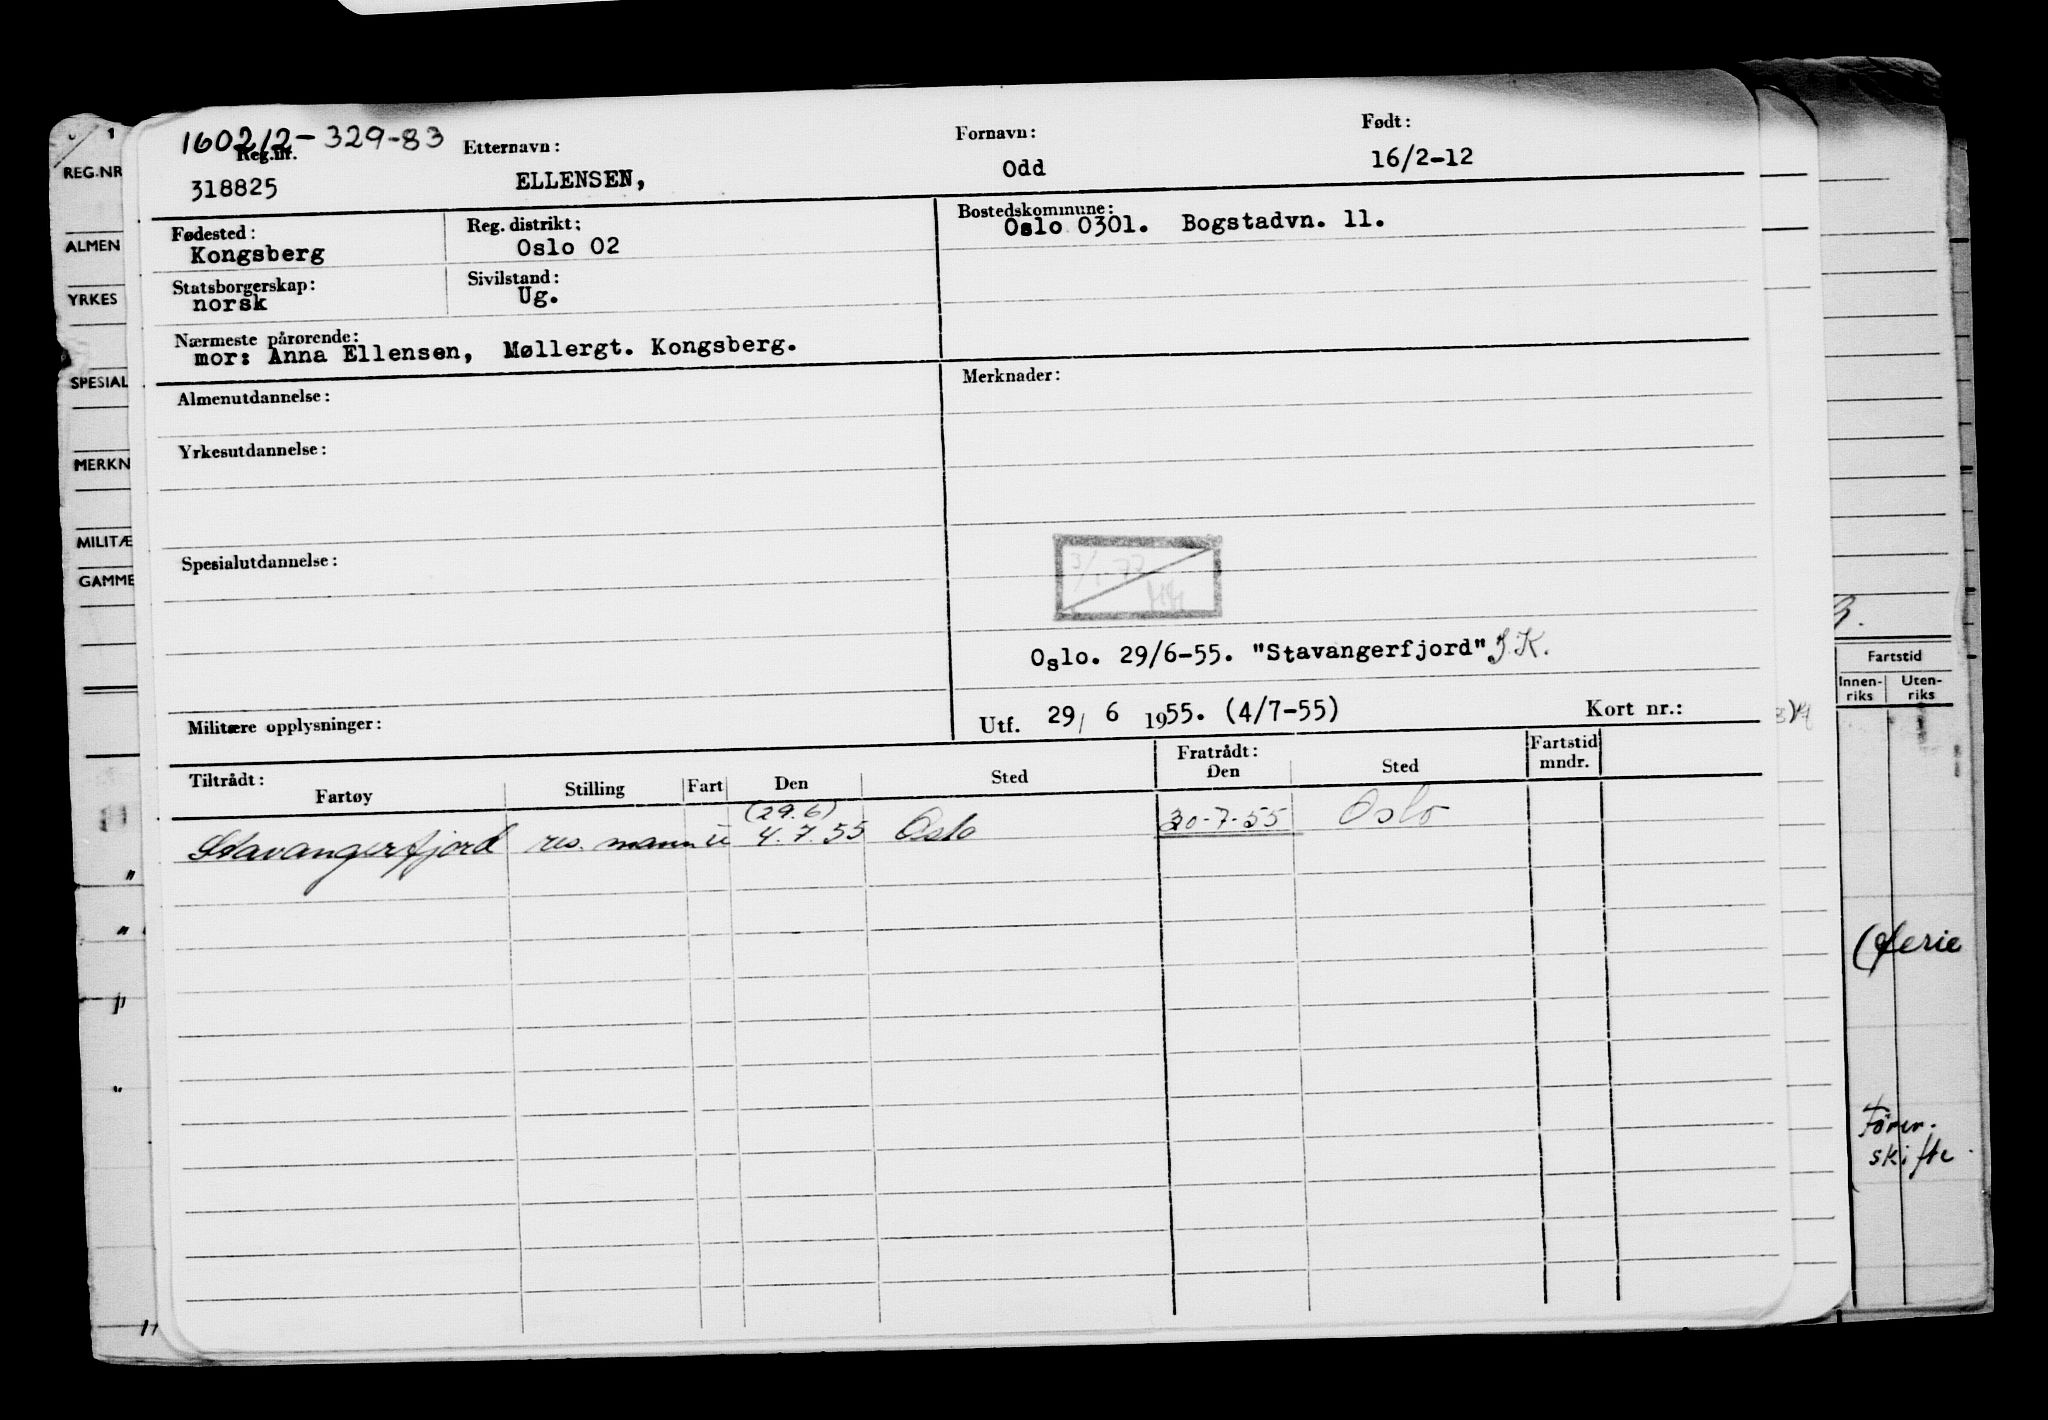 160212-329-83
Reg.nr. Etternavn: Fornavn: Født:
318825 ELLENSEN, Odd 16/2-12
Fødested: Reg. distrikt: Bostedskommune:
Kongsberg Oslo 02 Oslo 0301. Bogstadvn. 11.
Statsborgerskap: Sivilstand:
norsk Ug.
Nærmeste pårørende:
mor: Anna Ellensen, Møllergt. Kongsberg.
Almenutdannelse: Merknader:
Yrkesutdannelse:
Spesialutdannelse:
Oslo. 29/6-55. "Stavangerfjord" J.K.
Militære opplysninger: Utf. 29/ 6 1955. (4/7-55) Kort nr.:
Tiltrådt: Fratrådt: Fartstid
Fartøy Stilling Fart Den Sted Den Sted mndr.
(29.6)
Stavangerfjord res. mann u 4.7.55 Oslo 30-7-55 Oslo
1
REG.NR
ALMEN
YRKES
SPESIAL
MERKN
MILITÆ
GAMME
Fartstid
Innen-riks Uten-riks
(ferie
skifte